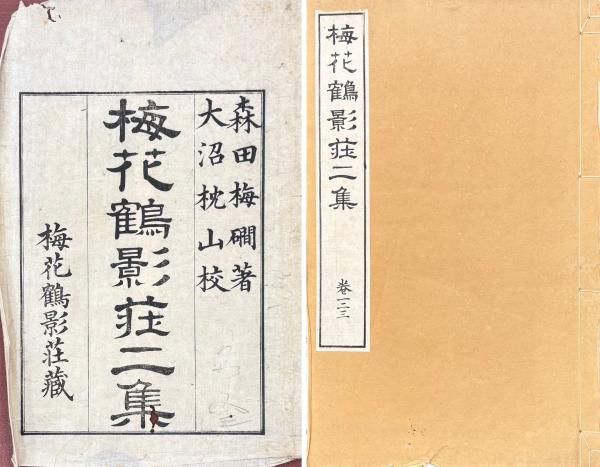 森田梅磵著
大沼枕山校
梅花鶴影荘二集
梅花鶴影荘藏
梅花鶴影荘二集